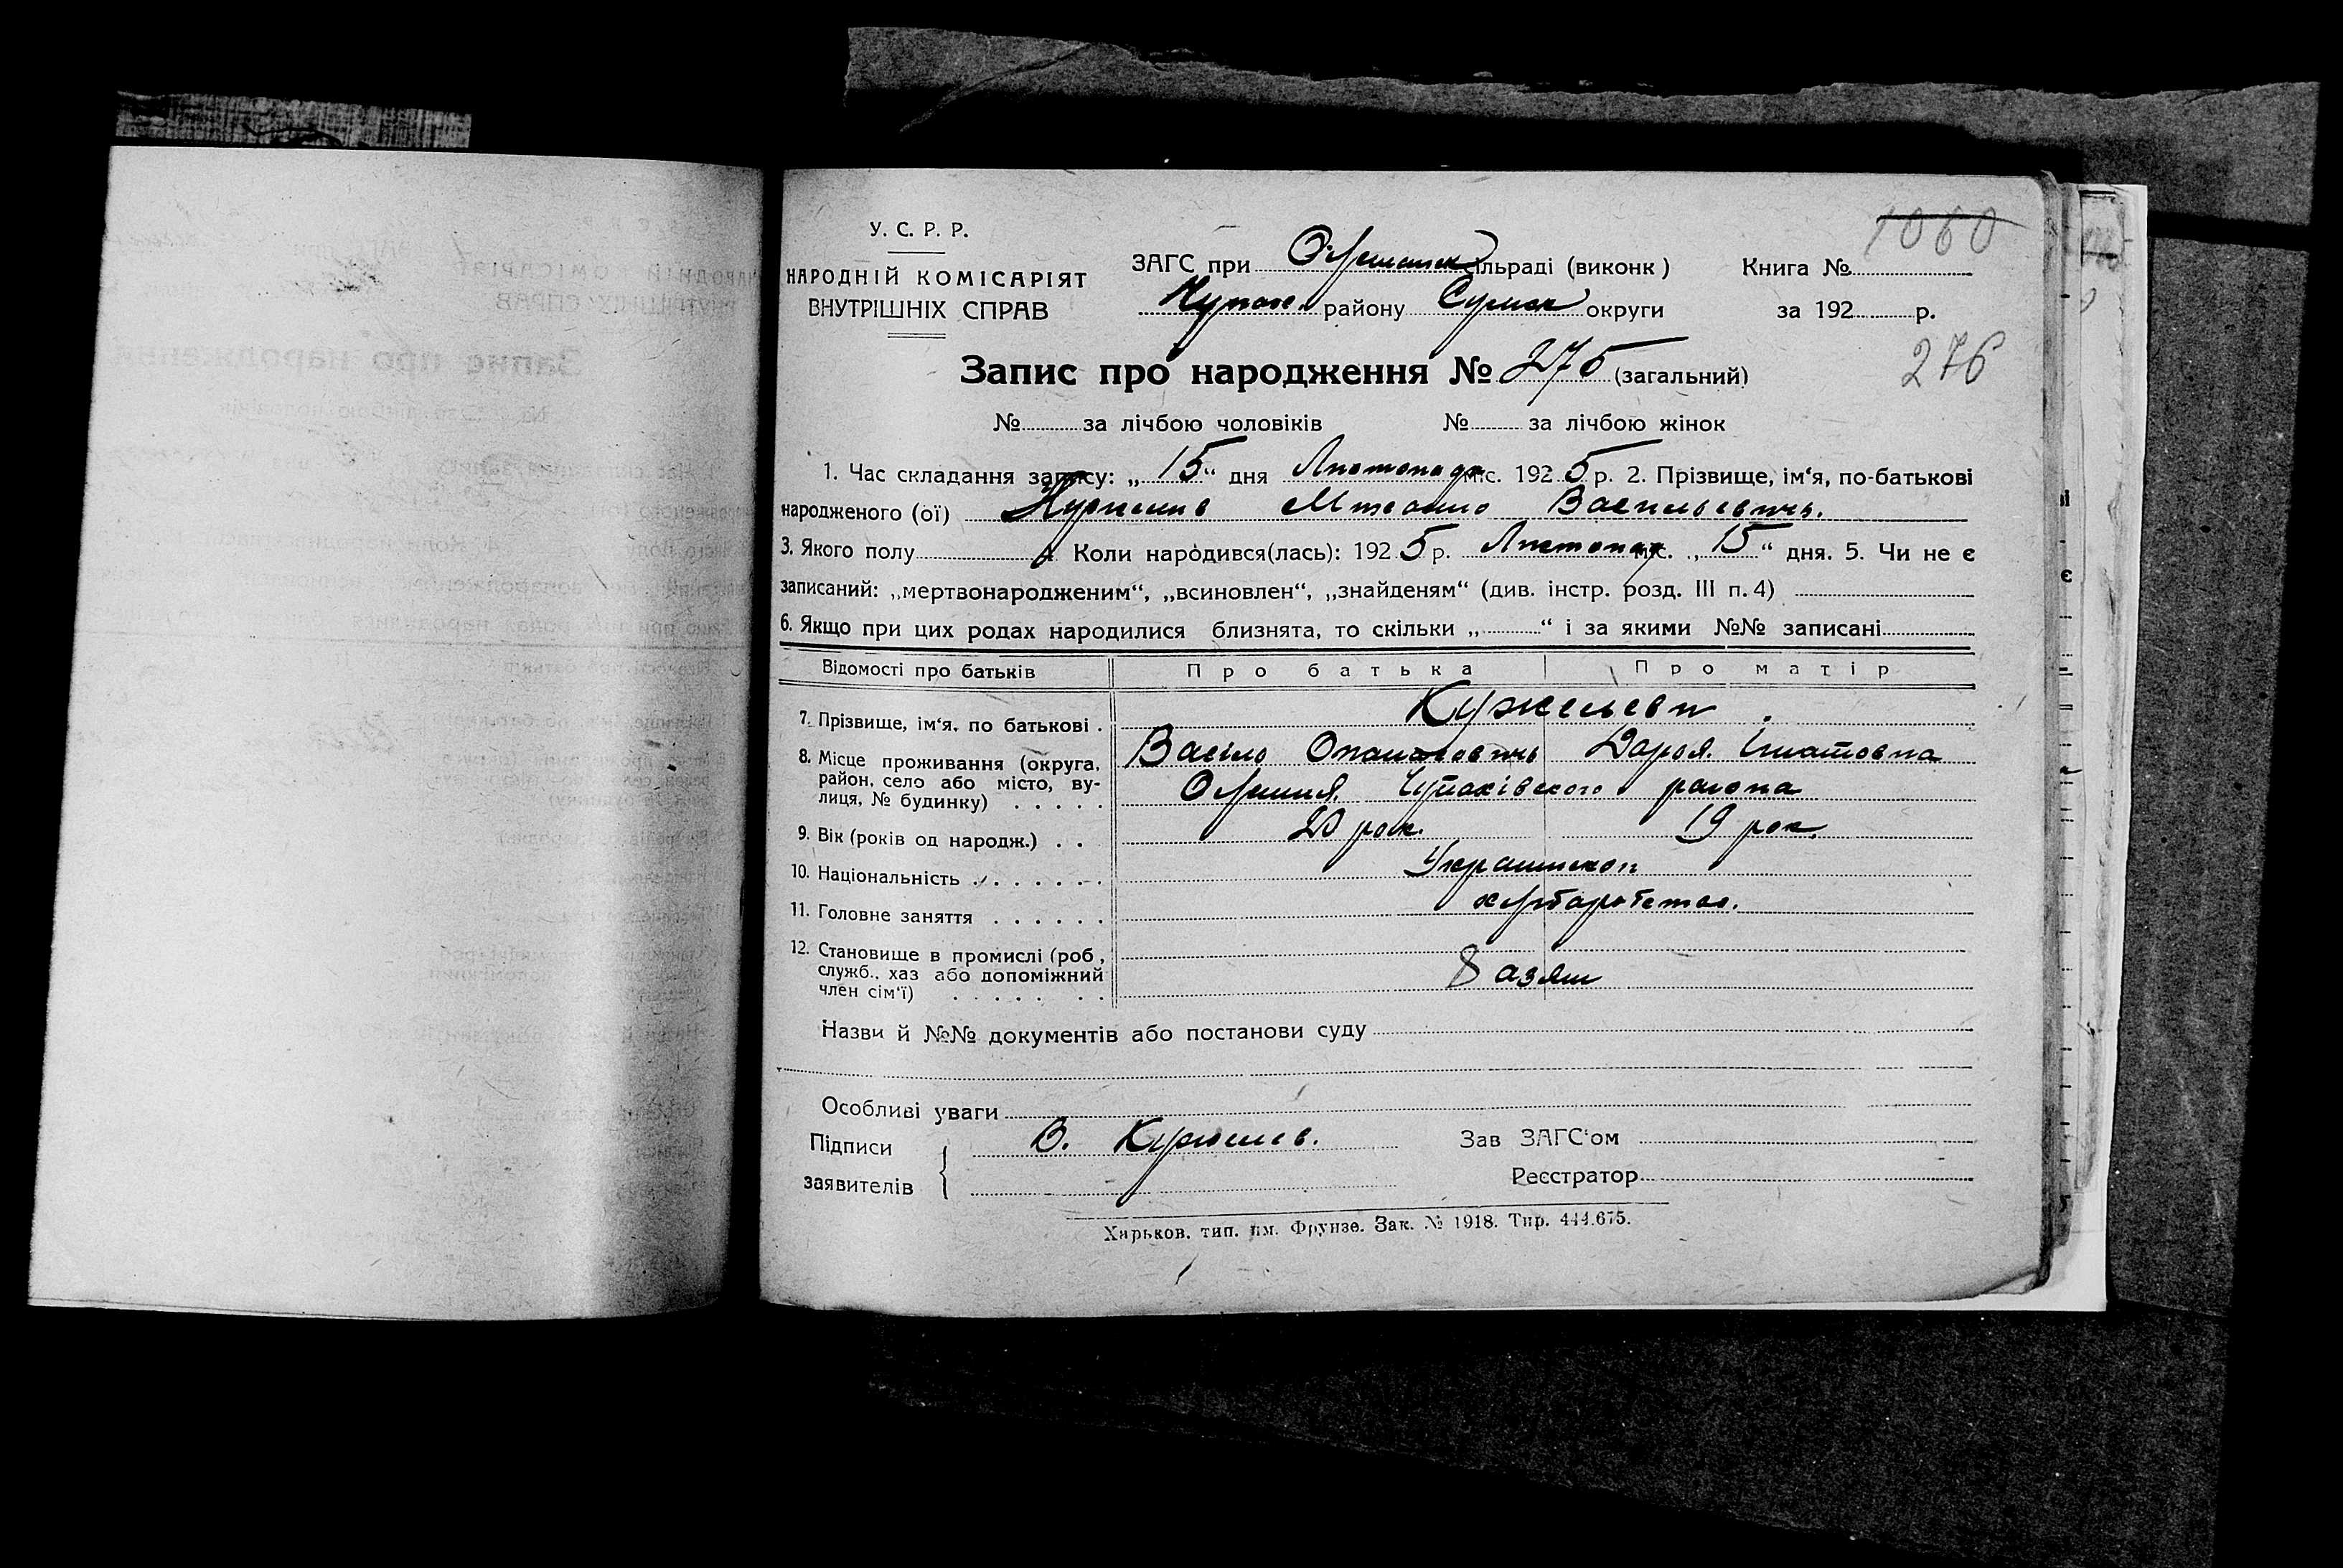 1060
У. С. Р. Р.
НАРОДНІЙ КОМІСАРІЯТ
ВНУТРІШНІХ СПРАВ
ЗАГС при сільраді (виконк)
Книга №
району Сумск округи
за 192 р.
276
Запис про народження № 275 (загальний)
№ за лічбою чоловіків № за лічбою жінок
1. Час складання запису: „ 15 “ дня Листопада міс. 1925 р. 2. Прізвище, ім‘я, по-батькові
народженого (ої) Васильевичь.
3. Якого полу 4. Коли народився(лась): 1925 р. Листопад міс. „ 15 “ дня. 5. Чи не є
записаний: „мертвонародженим“, „всиновлен“, „знайденям“ (див. інстр. розд. III п. 4)
6. Якщо при цих родах народилися близнята, то скільки „ “ і за якими №№ записані
Відомості про батьків Про батька Про матір
7. Прізвище, ім‘я, по батькові . Кужелеви
Васіло Опанасовичь Дарья Игнатовна
8. Місце проживання (округа,
район, село або місто, ву-
лиця, № будинку) . . . . . Чупахівского района
9. Вік (років од народж.) . . 20 рок. 19 рок.
10. Національність . . . . . . .
11. Головне заняття . . . . . .
12. Становище в промислі (роб,
служб., хаз або допоміжний
член сім‘ї) . . . . . . .
Назви й №№ документів або постанови суду
Особливі уваги
Підписи
заявителів
В. Кужелев.
Зав ЗАГС‘ом
Реєстратор
Харьков. тип. им. Фрунзе. Зак. № 1918. Тир. 444.675.